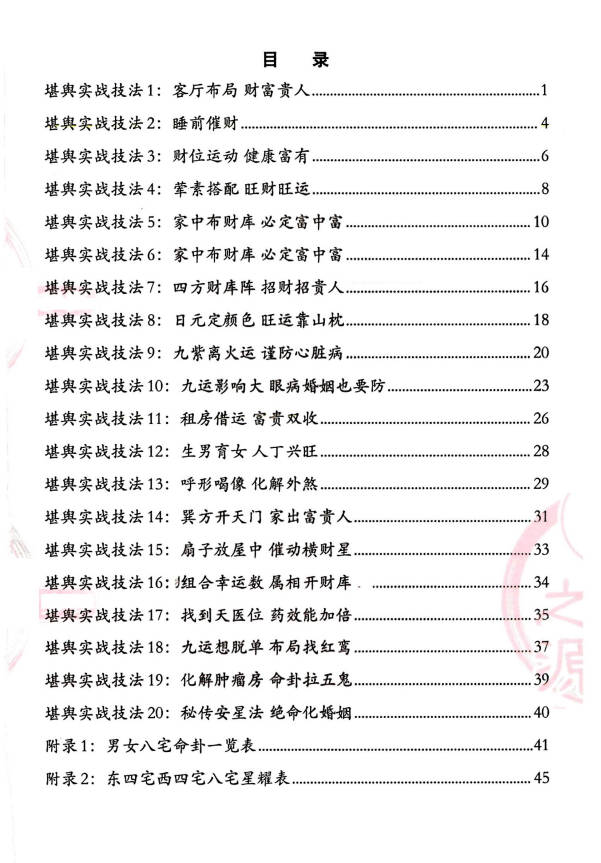 目 录
堪舆实战技法1：客厅布局 财富贵人........................1
堪舆实战技法2：睡前催财........................4
堪舆实战技法3：财位运动 健康富有........................6
堪舆实战技法4：荤素搭配 旺财旺运........................8
堪舆实战技法5：家中布财库 必定富中富........................10
堪舆实战技法6：家中布财库 必定富中富........................14
堪舆实战技法7：四方财库阵 招财招贵人........................16
堪舆实战技法8：日元定颜色 旺运靠山枕........................18
堪舆实战技法9：九紫离火运 谨防心脏病........................20
堪舆实战技法10：九运影响大 眼病婚姻也要防........................23
堪舆实战技法11：租房借运 富贵双收........................26
堪舆实战技法12：生男育女 人丁兴旺........................28
堪舆实战技法13：呼形喝像 化解外煞........................29
堪舆实战技法14：巽方开天门 家出富贵人........................31
堪舆实战技法15：扇子放屋中 催动横财星........................33
堪舆实战技法16：组合幸运数 属相开财库........................34
堪舆实战技法17：找到天医位 药效能加倍........................35
堪舆实战技法18：九运想脱单 布局找红鸾........................37
堪舆实战技法19：化解肿瘤房 命卦拉五鬼........................39
堪舆实战技法20：秘传安星法 绝命化婚姻........................40
附录1：男女八宅命卦一览表........................41
附录2：东四宅西四宅八宅星耀表........................45
之
源